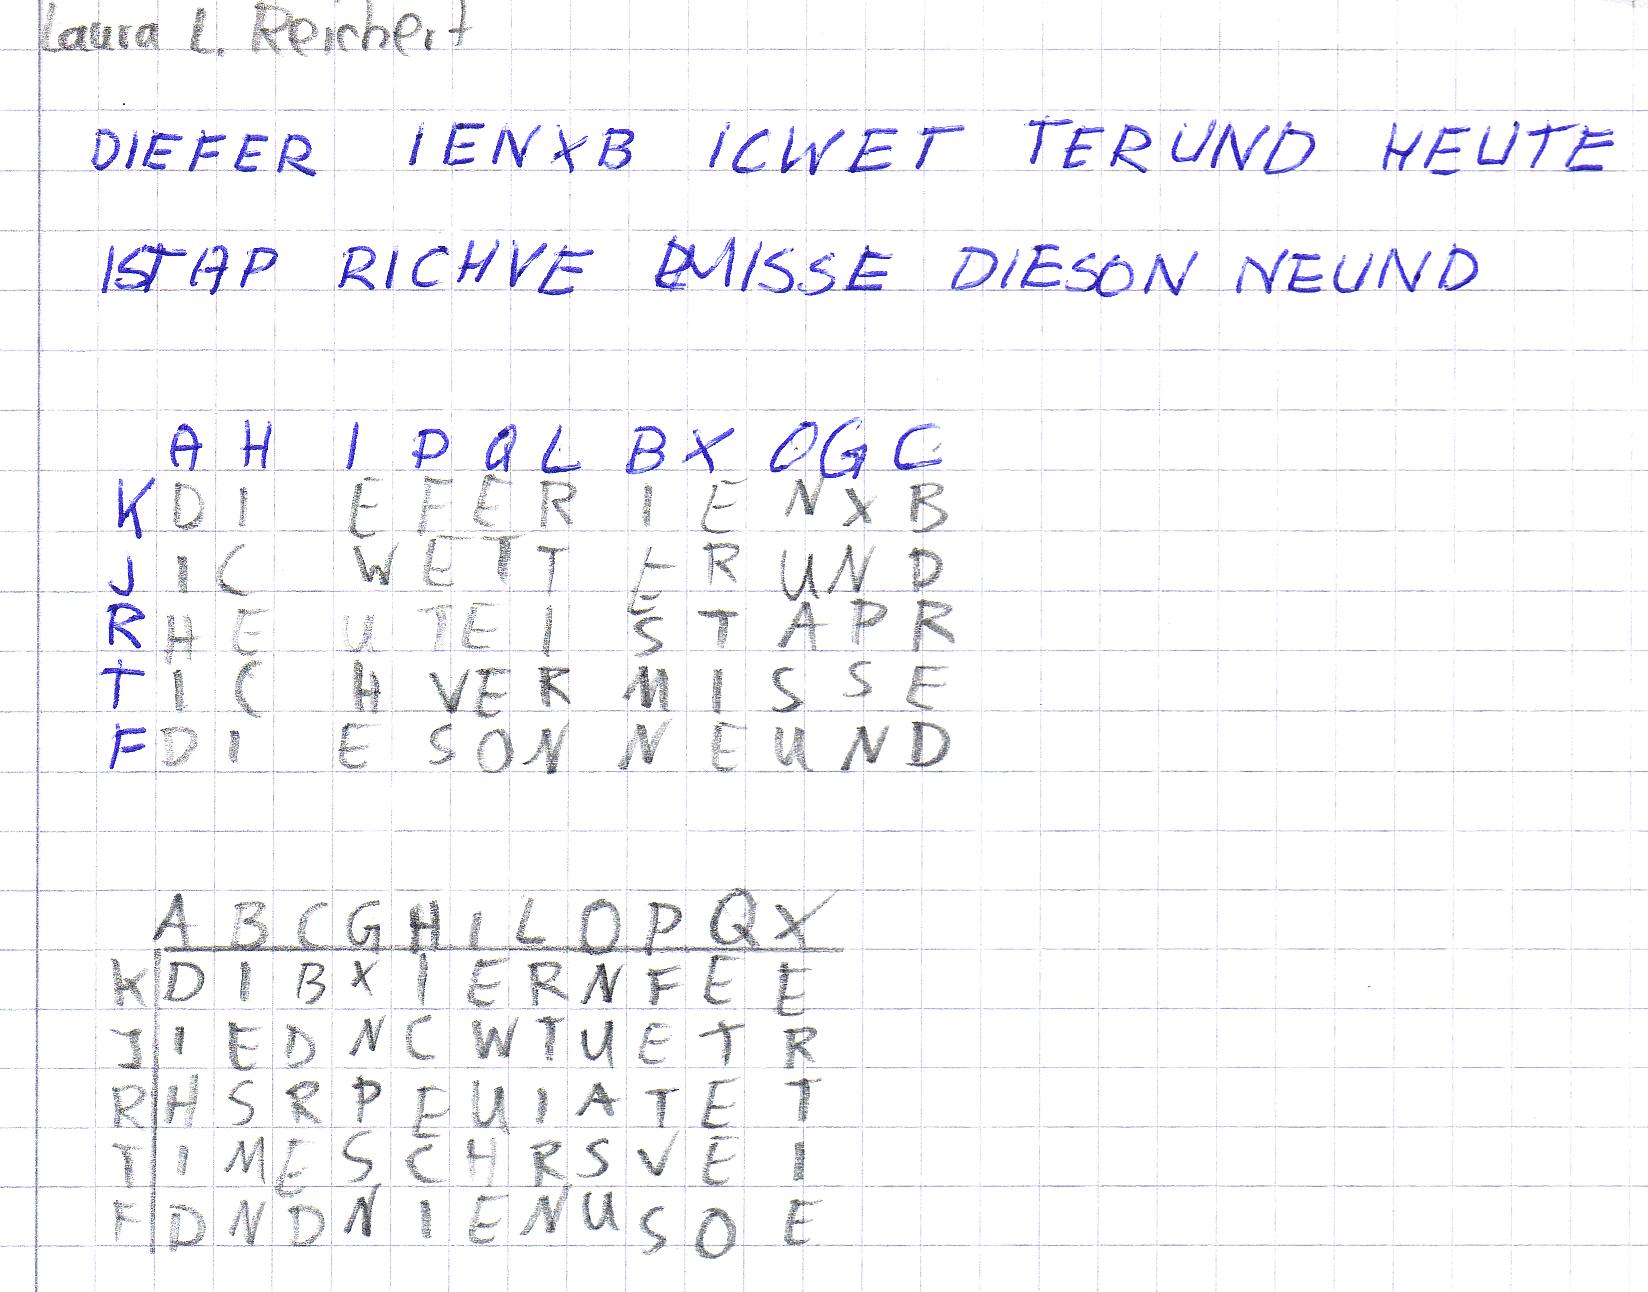 Laura L. Reichert
DIEFER IENXB ICWET TERUND HEUTE
ISTAP RICHVE RMISSE DIESON NEUND
A H I P Q L B X O G C
K D I E F E R I E N X B
J I C W E T T E R U N D
R H E U T E I S T A P R
T I C H V E R M I S S E
F D I E S O N N E U N D
A B C G H I L O P Q X
K D I B X I E R N F E E
J I E D N C W T U E T R
R H S R P E U I A T E T
T I M E S C H R S V E I
F D N D N I E N U S O E